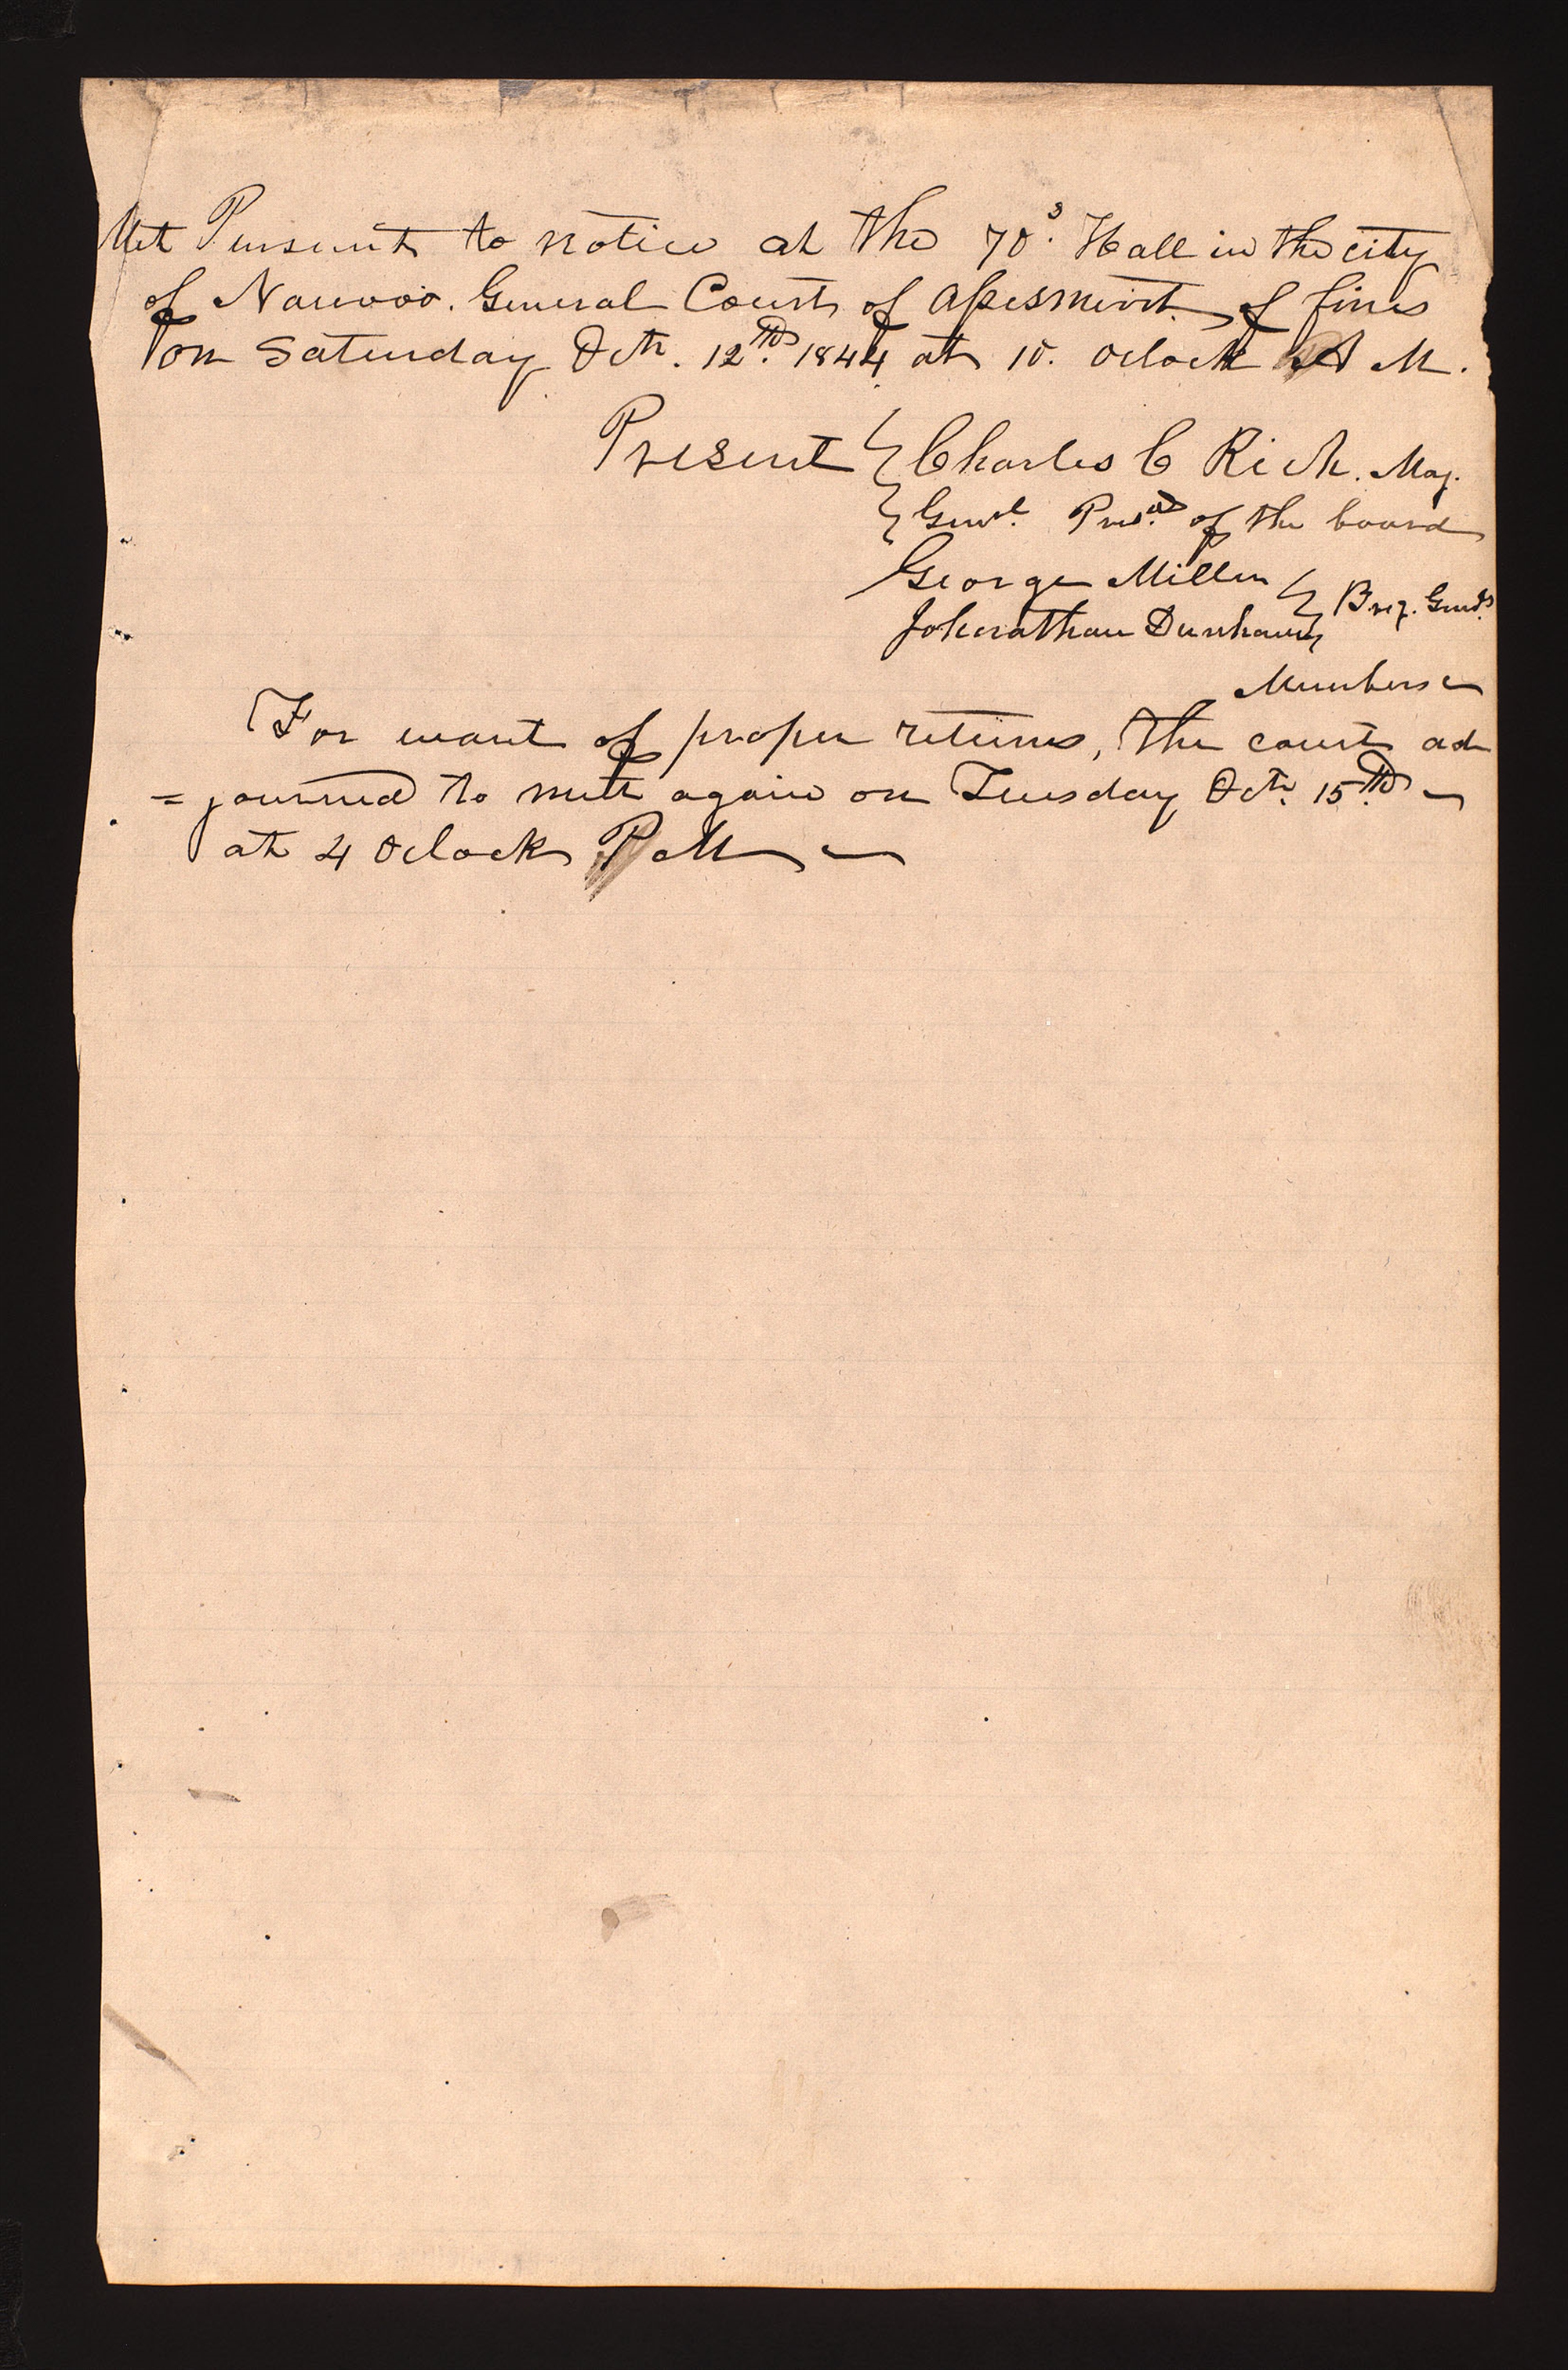 Met Pursuant to notice at the 70s. Hall in the city
of Nauvoo. General Court of Assesment of fines
on Saturday Oct. 12th. 1844 at 10. Oclock A M.
Present } Charles C Rich. Maj.
} Genrl. Presd. of the board
George Miller } Brig. Genls.
Johnathan Dunham }
Members
For want of proper returns, the court ad
=journed to meet again on Tuesday Oct. 15th.
at 4 Oclock P M